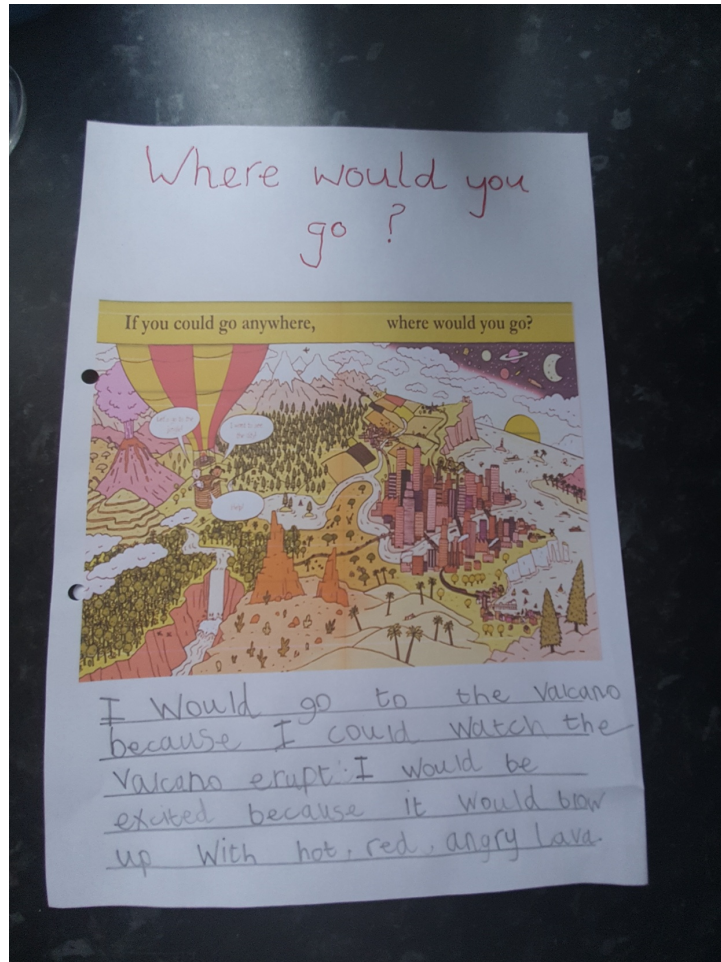 Where would you
go ?
If you could go anywhere, where would you go?
I would go to the Valcano
because I could watch the
Valcano erupt. I would be
excited because it would blow
up With hot, red, angry Lava.